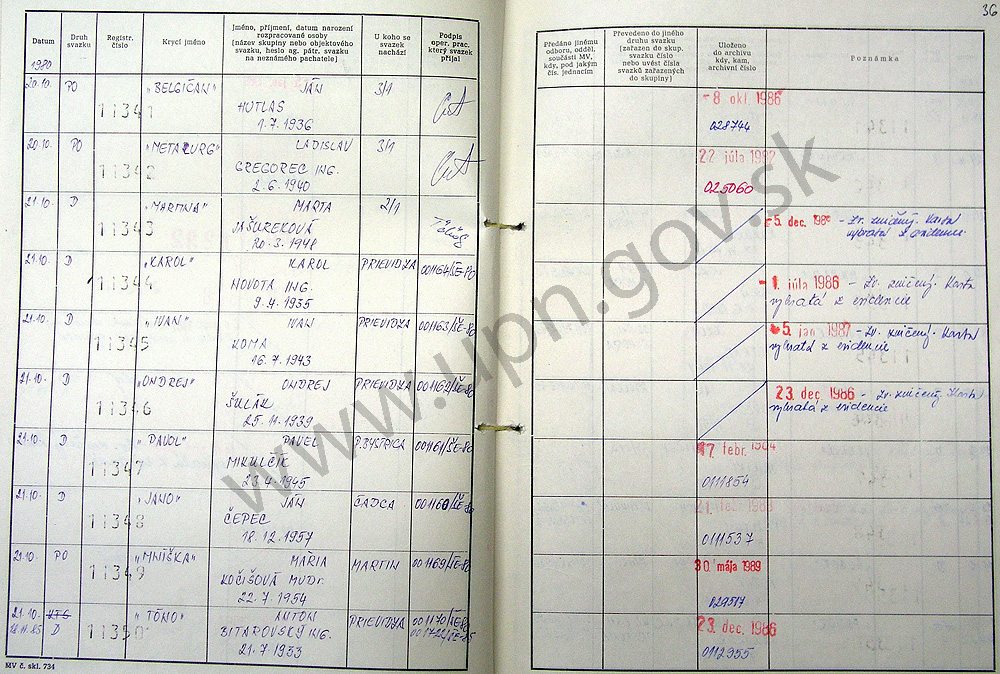 36
Datum
Druh svazku
Registr. číslo
Krycí jméno
Jméno, příjmení, datum narození rozpracované osoby
[název skupiny nebo objektového svazku, heslo ag. pátr. svazku na neznámého pachatele]
U koho se svazek nachází
Podpis oper. prac. který svazek přijal
Předáno jinému odboru, odděl. součásti MV, kdy, pod jakým čís. jednacím
Převedeno do jiného druhu svazku [zařazen do skup. svazku číslo nebo uvést čísla svazků zařazených do skupiny]
Uloženo do archivu kdy, kam, archivní číslo
Poznámka
1980
20.10. PO 11341 "BELGIČAN" JÁN 3/1
HUTLAS
1.7.1936
- 8 okt. 1986
028744
20.10. PO 11342 "METALURG" LADISLAV 3/1
GREGOREC ING.
2.6.1940
22 júla 1982
025060
21.10. D 11343 "MARTINA" MARTA 2/1
JAŠUREKOVÁ
20.3.1948
- 5. dec. 198 - Zv. zničený. Karta
vybratá z evidencie
21.10. D 11344 "KAROL" KAROL PRIEVIDZA 001164/ŠE-80
NOVOTA ING.
9.4.1935
- 1. júla 1986 - Zv. zničený. Karta
vybratá z evidencie
21.10. D 11345 "IVAN" IVAN PRIEVIDZA 001163/ŠE-80
KOMA
16.7.1943
5. jan 1987 - Zv. zničený. Karta
vybratá z evidencie
21.10. D 11346 "ONDREJ" ONDREJ PRIEVIDZA 001162/ŠE-80
ŠULÁK
25.11.1939
23. dec. 1986 - Zv. zničený. Karta
vybratá z evidencie
21.10. D 11347 "PAVOL" PAVEL P.BYSTRICA 001161/ŠE-80
MIKULČÍK
23.4.1945
17 febr. 1984
0111854
21.10. D 11348 "JANO" JÁN ČADCA 001160/ŠE-80
ČEPEC
18.12.1957
0111537
21.10. PO 11349 "MNÍŠKA" MÁRIA MARTIN 001169/ŠE-80
KOČIŠOVÁ MUDr.
22.7.1954
30. mája 1989
029517
21.10. KTS 11350 "TÓNO" ANTON PRIEVIDZA 001170/ŠE-80
18.11.85 D BITAROVSKÝ ING. 001722/ŠE-85
21.7.1933
23. dec. 1986
0112955
MV č. skl. 734
www.upn.gov.sk